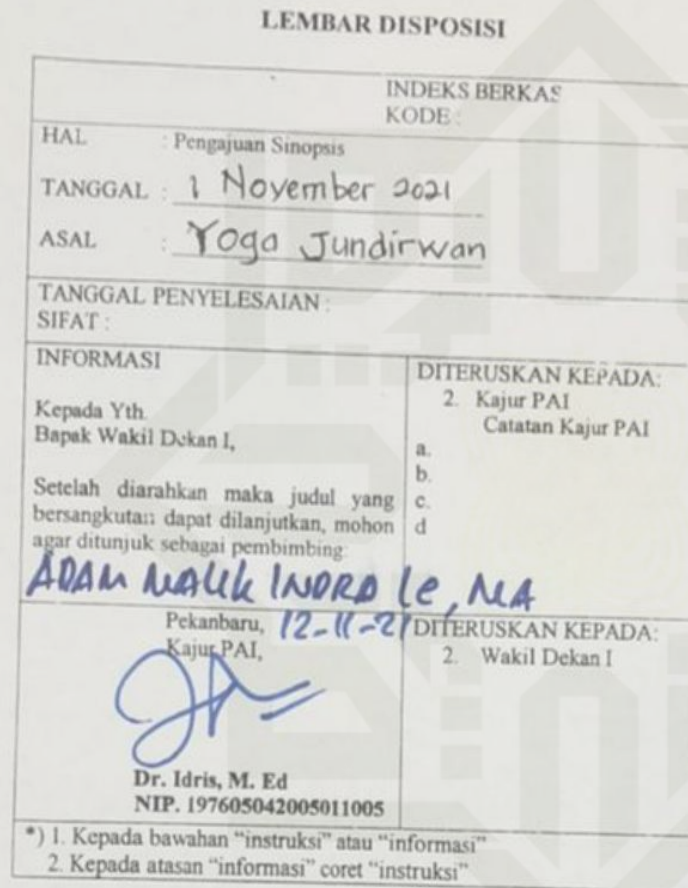 LEMBAR DISPOSISI
INDEKS BERKAS
KODE :
HAL : Pengajuan Sinopsis
TANGGAL : 1 November 2021
ASAL : Yoga Jundirwan
TANGGAL PENYELESAIAN :
SIFAT :
INFORMASI
Kepada Yth.
Bapak Wakil Dekan I,
Setelah diarahkan maka judul yang
bersangkutan dapat dilanjutkan, mohon
agar ditunjuk sebagai pembimbing:
ADAM MALIK INDRA lc, MA
DITERUSKAN KEPADA:
2. Kajur PAI
Catatan Kajur PAI
a.
b.
c.
d
Pekanbaru, 12-11-21
Kajur PAI,
Dr. Idris, M. Ed
NIP. 197605042005011005
DITERUSKAN KEPADA:
2. Wakil Dekan I
*) 1. Kepada bawahan “instruksi” atau “informasi”
2. Kepada atasan “informasi” coret “instruksi”